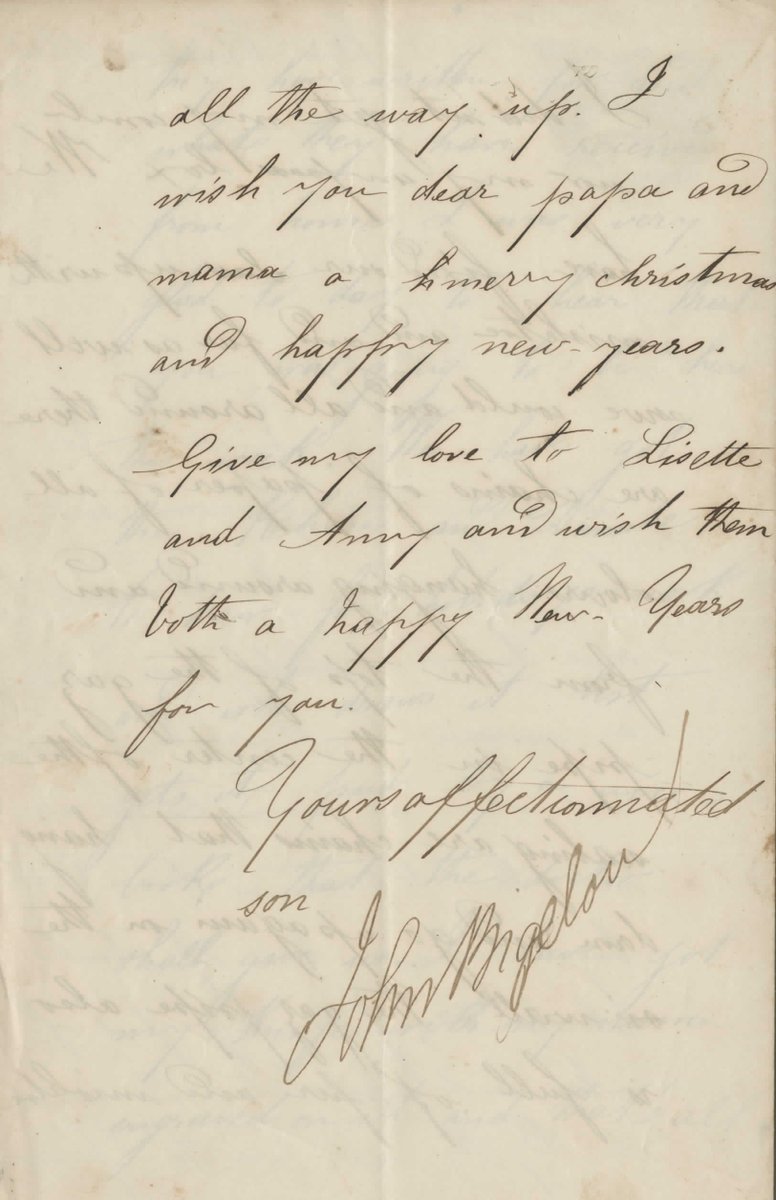 all the way up. I
wish you dear papa and
mama a hmerry christmas
and happy new-years.
Give my love to Lisette
and Anny and wish them
both a happy New-Years
for you.
Yours affectionnated
son
John Bigelow